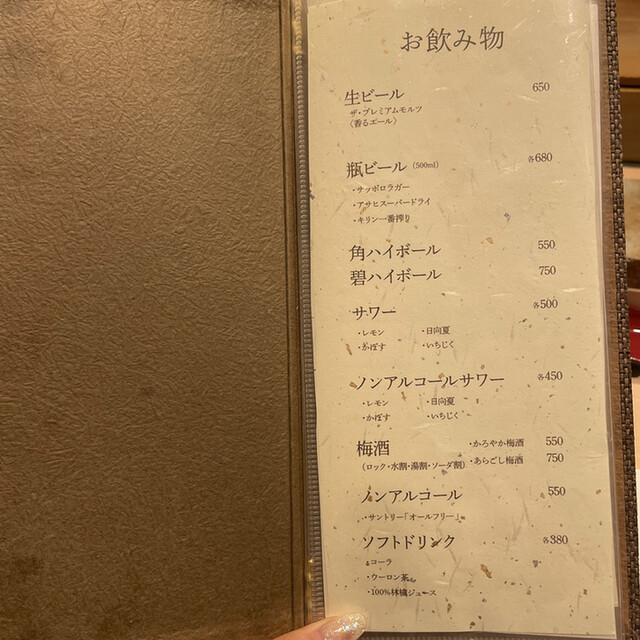 お飲み物
生ビール 650
ザ・プレミアムモルツ
〈香るエール〉
瓶ビール (500ml) 各680
・サッポロラガー
・アサヒスーパードライ
・キリン一番搾り
角ハイボール 550
碧ハイボール 750
サワー 各500
・レモン ・日向夏
・かぼす ・いちじく
ノンアルコールサワー 各450
・レモン ・日向夏
・かぼす ・いちじく
梅酒 ・かろやか梅酒 550
(ロック・水割・湯割・ソーダ割) ・あらごし梅酒 750
ノンアルコール 550
・サントリー「オールフリー」
ソフトドリンク 各380
・コーラ
・ウーロン茶
・100%林檎ジュース